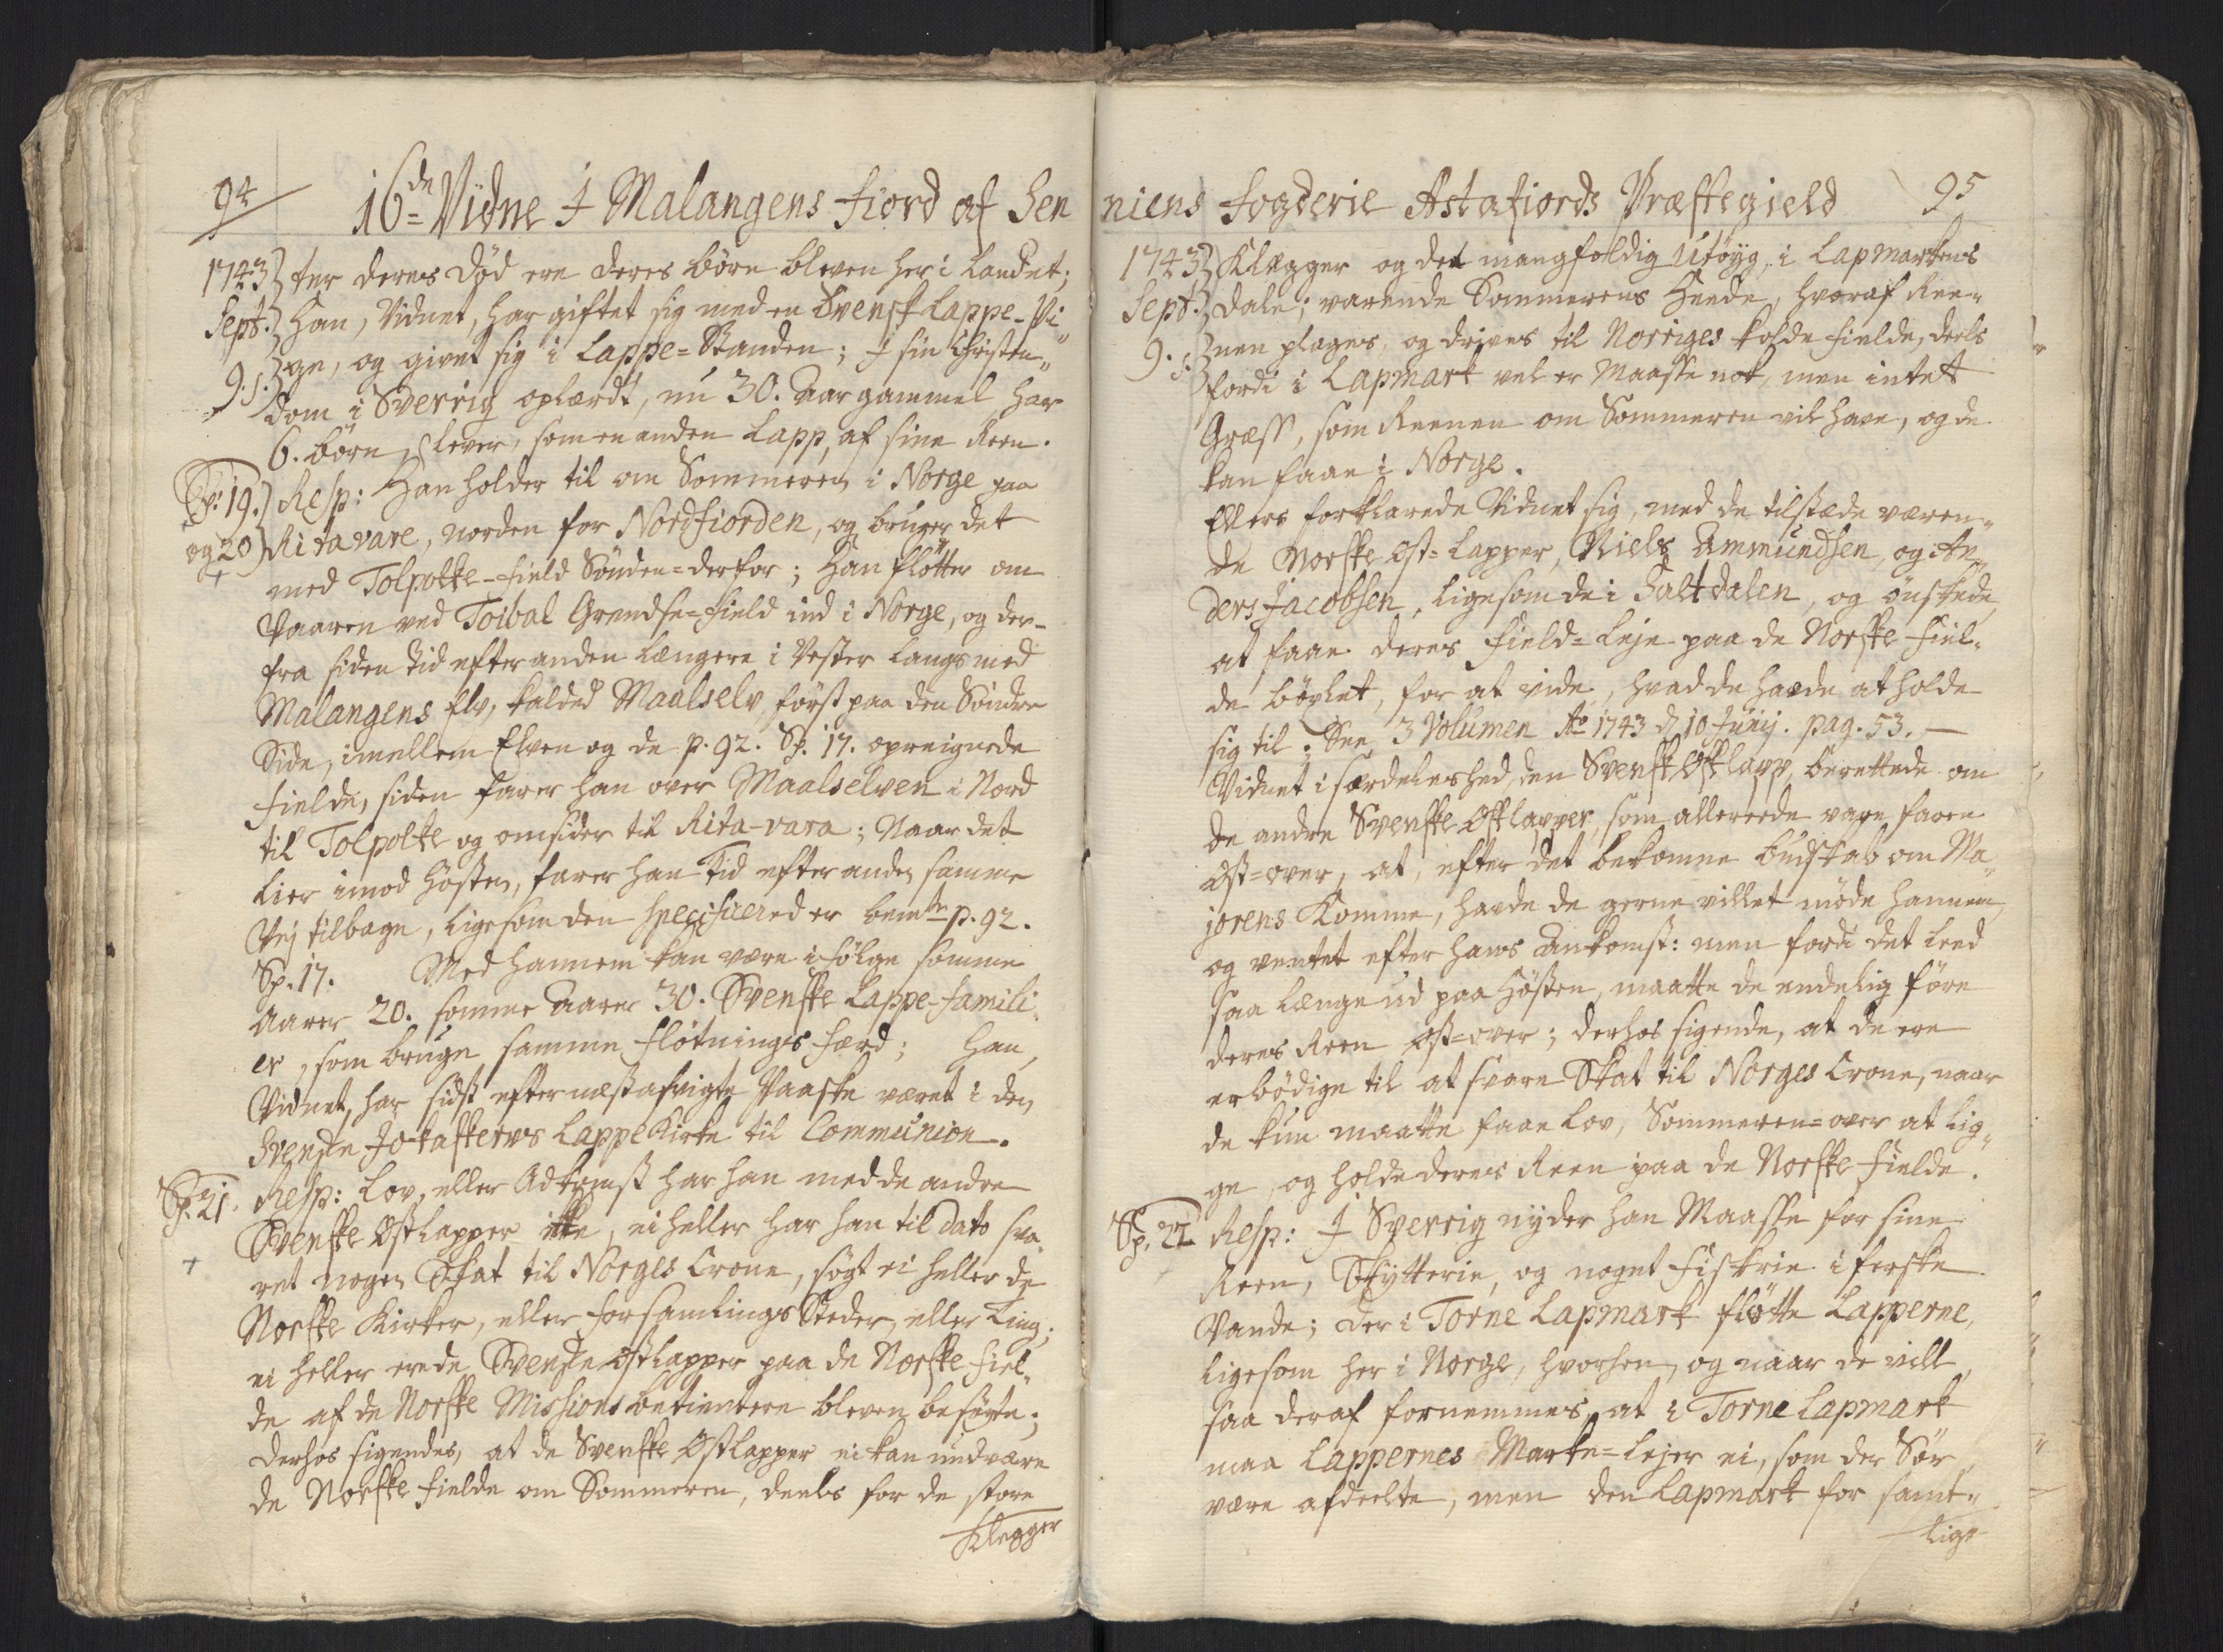 94
16de Vidne I Malangens Fiord af Sen
1743 ter deres Död ere deres börn bleven her i Landet;
Sept: Han, Vidnet, har giftet sig med en Svensk Lappe-Pi„
9. s. ge, og givet sig i Lappe=Standen; I sin Christen„
dom i Sverrig oplærdt, nu 30. Aar gammel, har
6. börn, lever, som en anden Lapp, af sine Reen.
Sp: 19. Resp: Han holder til om Sommeren i Norge paa
og 20 Ritavare, norden for Nordfiorden, og bruger det
med Tolpokke-field Sönden=derfor; Han flötter om
Vaaren ved Toibal Grendse=field ind i Norge, og der-
fra siden tid efter anden længere i Vester langs med
Malangens Elv, kalded Maalselv, först paa den Söndre
Side, imellem Elven og de p. 92. Sp. 17. opreignede
fielde, siden farer han over Maalselven i Nord
til Tolpokke og omsider til Rita-vara; Naar det
lier imod Hösten, farer han tid efter anden samme
Vej tilbage, ligesom den specificered er bemte p. 92.
Sp. 17. Med hannem kan være i fölge somme
Aarer 20. somme Aarer 30. Svenske Lappe-famili„
er, som bruge samme flötnings færd; Han,
Vidnet, har sidst efter næstafvigte Paaske været i den
Svenske Jockaskerws Lappe Kirke til Communion.
Sp. 21. Resp: Lov, eller Adkomst har han med de andre
Svenske Østlapper ikke, ei heller har han til dato sva„
ret nogen Skat til Norges Crone, sögt ei heller de
Norske Kirker, eller forsamlings Steder, eller Ting;
ei heller ere de Svenske østlapper paa de Norske fiel„
de af de Norske Missions betientere bleven besögte;
derhos sigendes, at de Svenske Østlapper ei kan undvære
de Norske fielde om Sommeren, deels for de store
Klegger
niens Fogderie Astafiords Præstegield 95
1743 Klegger og det mangfoldig Utöyg, i Lapmarkens
Sept: dale, varende Sommerens Heede, hvoraf Ree-
9. s. nen plages, og drives til Norriges kolde fielde, deels
fordi i Lapmark vel er Maasse nok, men intet
Græss, som Reenen om Sommeren vil have, og de
kan faae i Norge.
Ellers forklarede Vidnet sig, med de tilstæde væren„
de Norske Øst=Lapper, Niels Ammundsen, og An„
ders Jacobsen, ligesom de i Saltdalen, og önskede
at faae deres Field=Leje paa de Norske Fiel„
de böxlet, for at vide, hvad de havde at holde
sig til; See, 3 Volumen Ao 1743 d. 10 Junij. pag. 53.
Vidnet i særdeleshed, den Svensk Østlapp, berettede om
de andre Svenske Østlapper, som allereede vare faren
Øst=over, at, efter det bekomne budskab om Ma„
jorens Komme, havde de gerne villet möde hannem,
og ventet efter hans Ankomst: men fordi det leed
saa længe ud paa Hösten, maatte de endelig före
deres Reen Øst=over; derhos sigende, at de ere
erbödige til at svare Skat til Norges Crone, naar
de kun maatte faae Lov, Sommeren=over at lig„
ge, og holde deres Reen paa de Norske fielde.
Sp. 22 Resp: I Sverrig nyder han Maasse for sine
Reen, Skytterie, og noget Fiskrie i ferske
Vande; der i Torne Lapmark flötte Lapperne,
ligesom her i Norge, hvorhen, og naar de vill,
saa deraf fornemmes, at i Torne Lapmark
maa Lappernes Marke=Lejer ei, som der Sör,
være afdeelte, men den Lapmark for samt„
lige